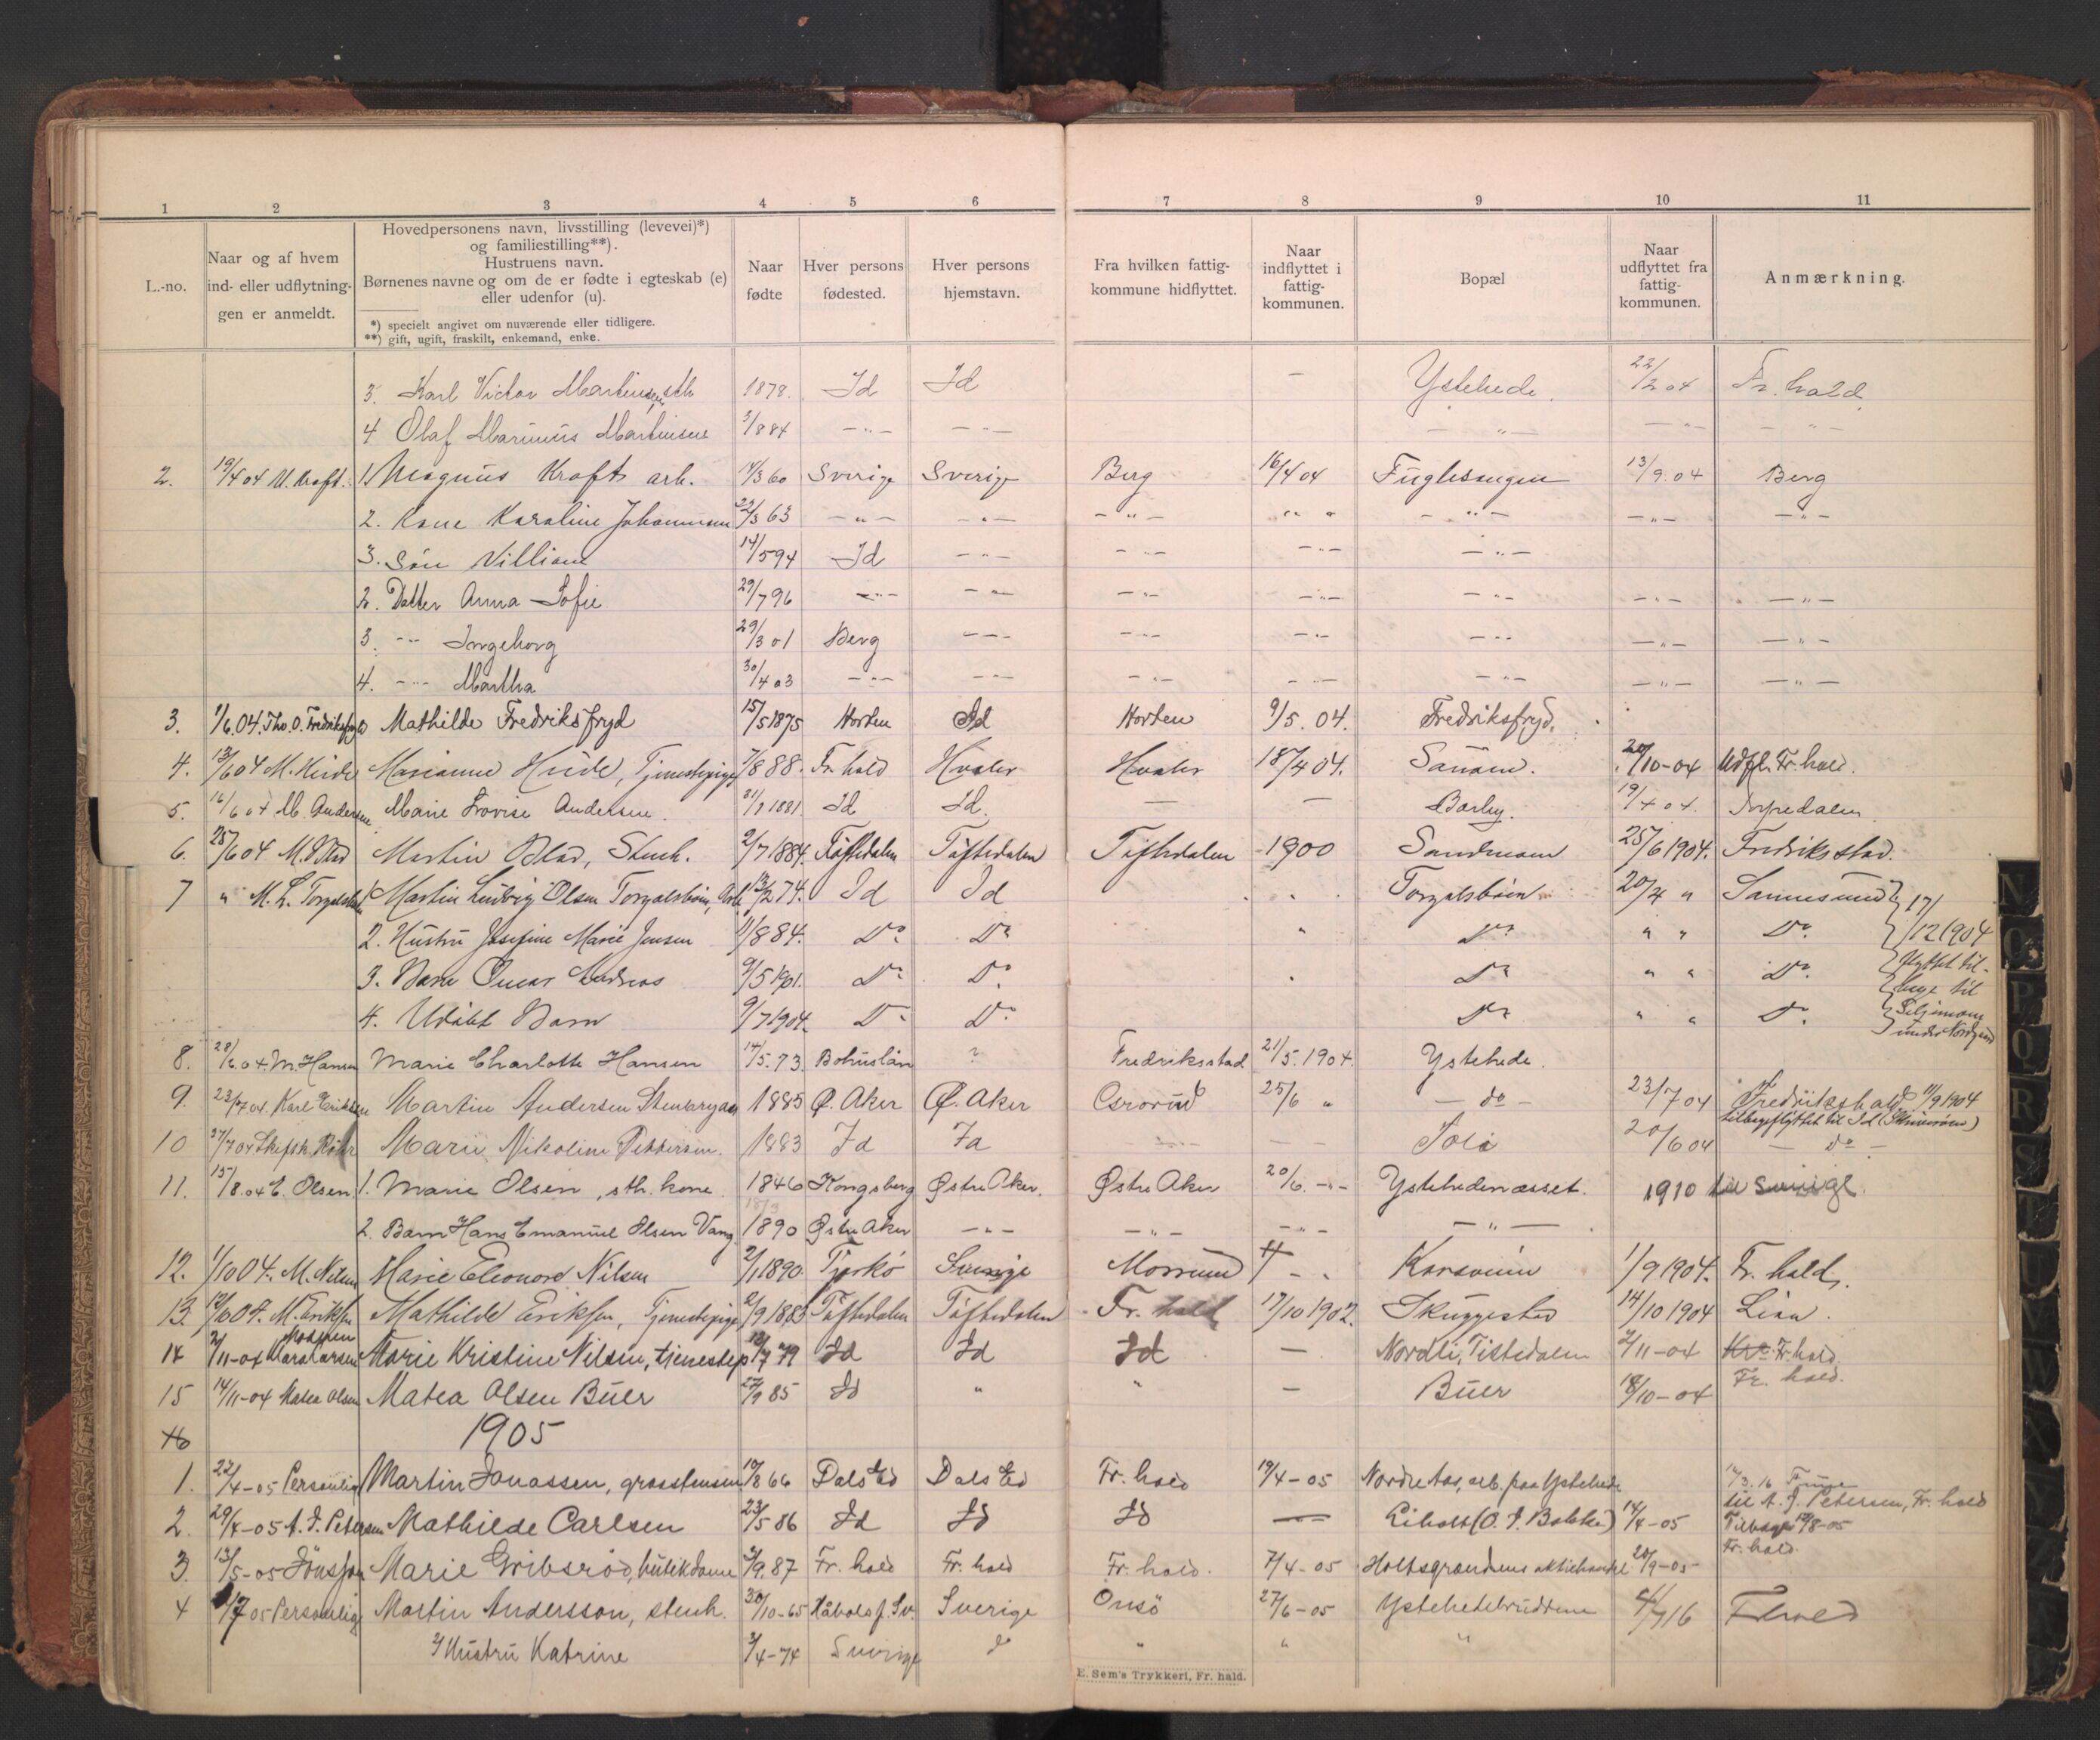 1 2 3 4 5 6 7 8 9 10 11
L.-no.
Naar og af hvem
ind- eller udflytnin-
gen er anmeldt.
Hovedpersonens navn, livsstilling (levevei)*)
og familiestilling**).
Hustruens navn.
Børnenes navne og om de er fødte i egteskab (e)
eller udenfor (u).
*) specielt angivet om nuværende eller tidligere.
**) gift, ugift, fraskilt, enkemand, enke.
Naar
fødte
Hver persons
fødested.
Hver persons
hjemstavn.
Fra hvilken fattig-
kommune hidflyttet.
Naar
indflyttet i
fattig-
kommunen.
Bopæl
Naar
udflyttet fra
fattig-
kommunen.
Anmærkning.
3. Karl Victor Martinsen sth 1878. Id Id — Ystehede. 22/2 04 Fr. hald
4 Olaf Marinius Martinsen 3/884 —"— —"— —"— —"— —"—
2. 19/4 04 M. Kraft. 1 Magnus Kraft arb. 14/3 60 Sverige Sverige Berg 16/4 04 Fuglesangen 13/9.04 Berg
2. Kone Karoline Johannesen 22/3 63 —"— —"— —"— " " —"— —"— —"—
3. Søn Villiam 14/5 94 Id —"— —"— —"— —"—
2. Datter Anna Sofie 29/7 96 —"— —"— —"— —"— —"— —"— —"—
3. —"— Ingeborg 29/3 01 Berg —"— —"— —"— —"— —"— —"—
4. —"— Martha 30/4 03 —"— —"— —"— —"— —"— —"— —"—
3. 1/6.04. Tho. O. Fredriksfryd Mathilde Fredriksfryd 15/5 1875 Horten Id Horten 9/5.04. Fredriksfryd.
4. 13/6 04 M. Hvide Marianne Hvide, Tjenestepige 7/8 88. Fr. hald Hvaler Hvaler 18/4 04. 20/10-04 Udfl. Fr. hald.
5. 16/6 04 M. Andersen Marie Lovise Andersen. 31/ 1881. Id Id. — — Barby. 19/4 04. Torpedalen
6. 25/6 04 M. Blad Martin Blad, Stenh. 2/7 1884. Tistedalen Tistedalen Tistedalen 1900 Sandmoen 25/6 1904. Fredriksstad.
7 " M. L. 1 Martin Ludvig Olsen Arb 13/2 74. Id Id 20/4 " Sannesund 17/
2. Hustru Josefine Marie Jensen 1/8 84. Do Do " Do " " Do. 12 1904
3. Barn Andreas 9/5 1901. Do Do. Do " " Do. flyttet til-
4. Udøbt Barn 9/7 1904. Do Do. Do " " Do. bage til
under
8. 28/6.04. M. Hansen Marie Charlotte Hansen 14/5.73. Bohuslän ? Fredriksstad 21/5.1904. Ystehede.
9. 23/7 04. Karl Eriksen Martin Andersen 1885 Ø. Aker Ø. Aker 25/6 " — do — 23/7 04 Fredrikshald 11/9 1904
tilbageflyttet til Id
10 27/7 04 Marie Nikoline Pettersen. 1883 Id Id — — 20/6 04 — do —
11. 15/8.04 E. Olsen 1. Marie Olsen, sth. kone 1846 Kongsberg Østre Aker. Østre Aker 20/6. —"— Ystehedenæsset. 1910 til Sverige.
2. Barn Hans Emanuel Olsen Vang 1890 Østre Aker —"— —"— —"— —"—
12. 1/10 04. M. Nilsen Marie Eleonore Nilsen 2/1 1890. Sverige 1/9 1904. Fr. hald.
13. 12/10 04. M. Eriksen Mathilde Eriksen, Tjenestepige 2/9 1883 Tistedalen Tistedalen Fr. hald 17/10 1902. Skuggestad 14/10 1904 Lien.
14 2/11-04 Marie Kristine Nilsen, tjenestep. 12/7 79 Id Id Id — Nordli, Tistedalen 2/11-04 Fr. hald.
15 14/11-04 Matea Olsen Matea Olsen Buer 27/9 85 Id " " — Buer 18/10-04 Fr. hald.
16
1905
1. 22/4-05 Personlig Martin Jonassen, 19/8 66 Dals Ed Dals Ed Fr. hald 19/4-05 arb. paa Ystehede
2. 29/4-05 A. J. Petersen Mathilde Carlsen 23/5 86 Id Id Id — 14/4-05 til A. J. Petersen, Fr. hald
Tilbage 12/8-05
3. 13/5-05 Jönsson Marie Gribsrød, butikdame 2/9.87 Fr. hald Fr. hald Fr. hald. 7/4-05 20/9-05 Fr. hald.
4 1/7 05 Personlig Martin Andersson, stenh. 30/10-65 Håbols f. Sv. Sverige Onsö 27/6-05 Ystehedebruddene 4/7 16 Fr. hald
2/ Hustru Katrine 3/4-74 Sverige do " " "
E. Sem's Trykkeri, Fr. hald.
N O P Q R S T U V W X